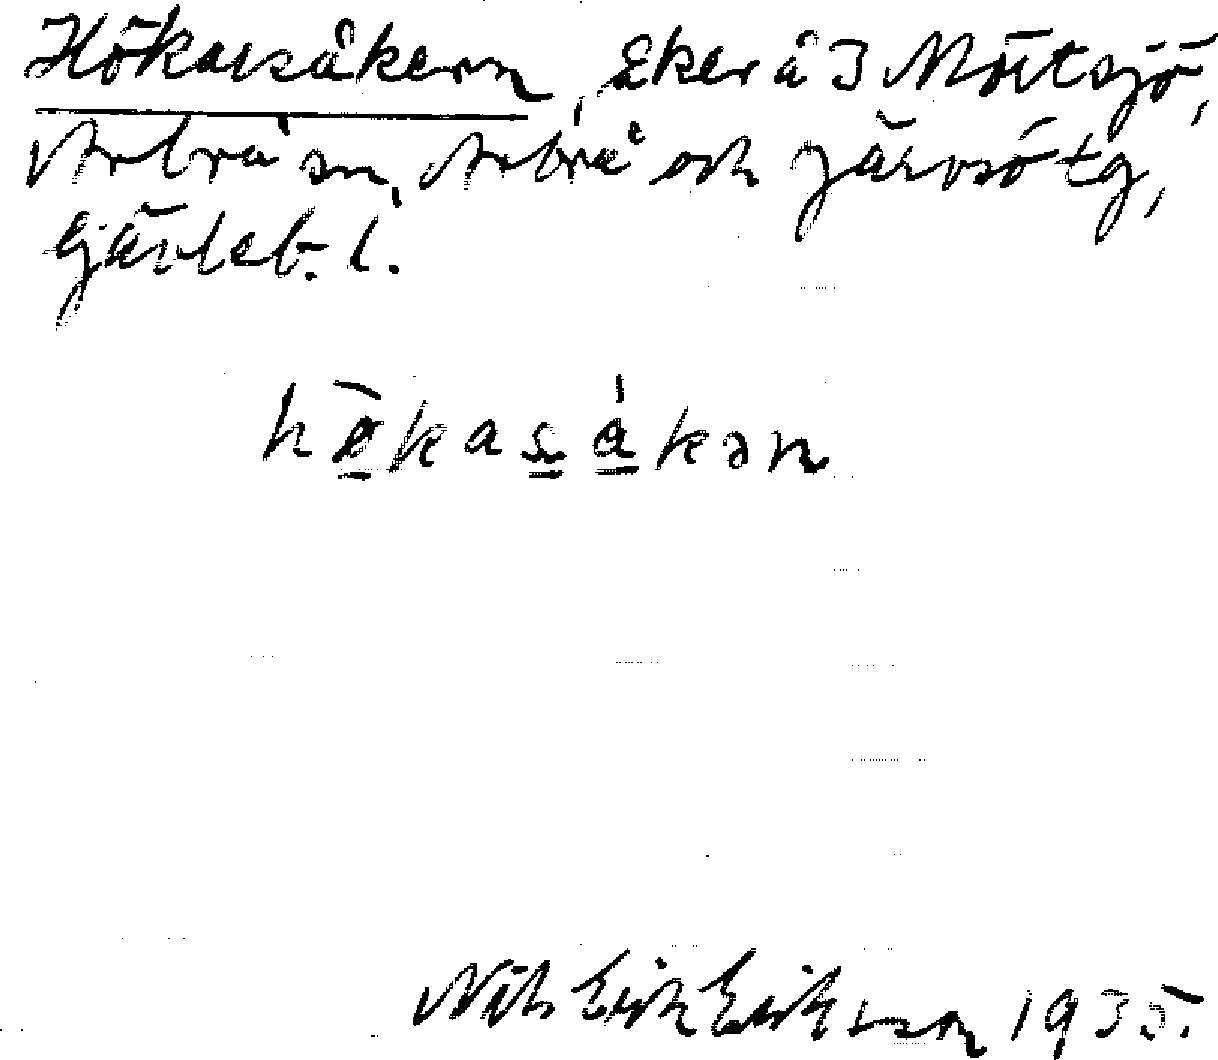 Hökarsåkern, åker å 3 Mörtsjö,
Arbrå sn, Arbrå och Järvsö tg,
Gävleb. l.
hökasåkən
Nils Erik Eriksson 1935.